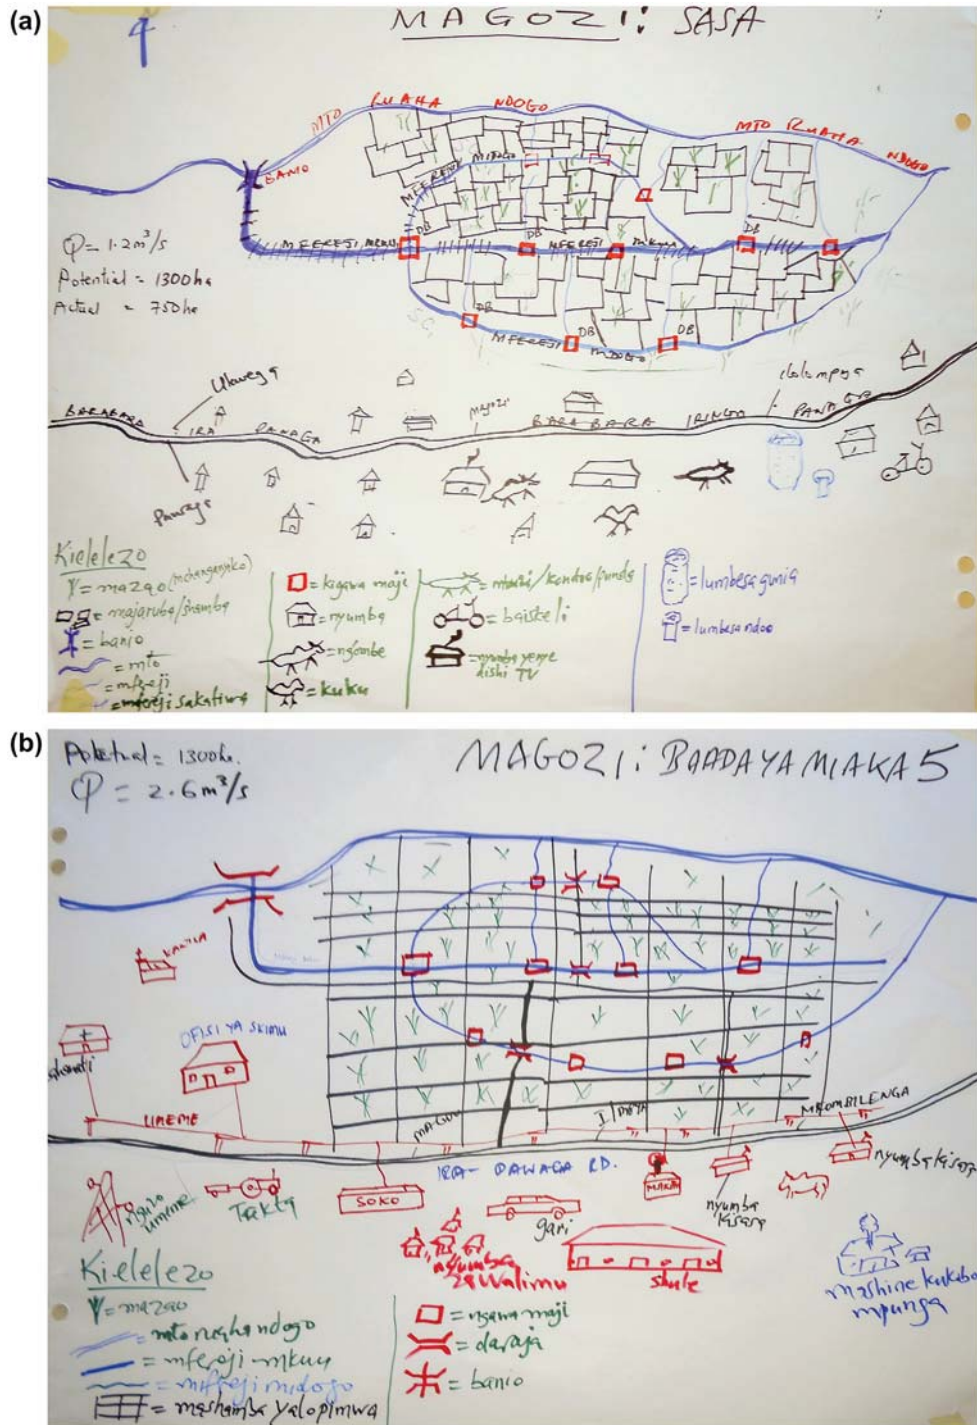 (a)
4
MAGOZI: SASA
MTO RUAHA NDOGO
MTO RUAHA NDOGO
BANIO
MFEREJI MDOGO
MFEREJI MKUU
DB
DB
MFEREJI MKUU
DB
Q = 1.2 m³/s
Potential = 1300ha
Actual = 750ha
S.C.
DB
DB
DB
MFEREJI MDOGO
Ukwega
MAGOZI
BARABARA IRA PANAGA
BARABARA IRINGA PANAGA
Pawaga
Kielelezo
= mazao (mchanganyiko)
= majaruba/shamba
= banio
= mto
= mfereji
= mfereji sakatiwa
= kigawa maji
= nyumba
= ng'ombe
= kuku
= mbuzi/kondoo/punda
= baiskeli
= nyumba yenye dishi TV
= lumbesa gunia
= lumbesa ndoo
(b)
Potential = 1300ha.
Q = 2.6 m³/s
MAGOZI: BAADA YA MIAKA 5
OFISI YA SKIMU
UMEME
MAGOZI
MKOMBILENGA
IRA - PAWAGA RD.
nguzo umeme
Takta
SOKO
gari
nyumba kisasa
nyumba kisasa
nyumba za walimu
shule
mashine kukoboa mpunga
Kielelezo
= mazao
= mto ruaha ndogo
= mfereji mkuu
= mifereji midogo
= mashamba yalopimwa
= ngawa maji
= daraja
= banio